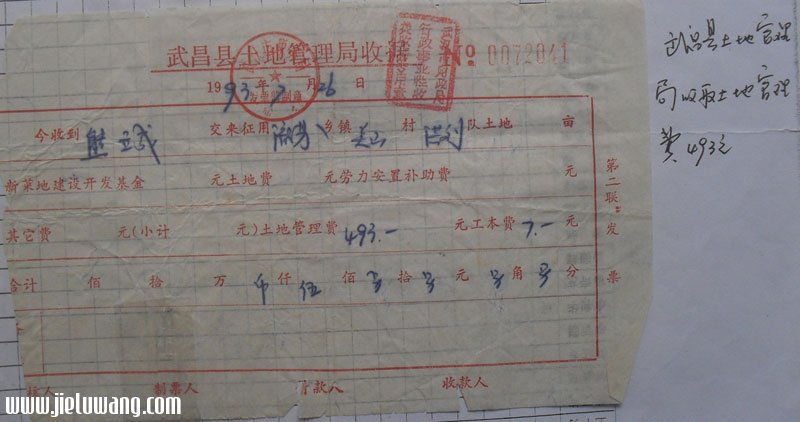 武昌县土地管理局收据 №0072041
1993年7月26日
今收到 熊立武 交来征用 流芳 乡镇 关山 村 洪刘 队土地 亩
新菜地建设开发基金 元土地费 元劳力安置补助费 元
其它费 元(小计 元)土地管理费493.- 元工本费7.- 元
合计 佰 拾 万 仟 伍 佰 拾 元 角 分
制票人 付款人 收款人
第二联:发票
武昌县土地管理
局收取土地管理
费493元
www.jieluwang.com